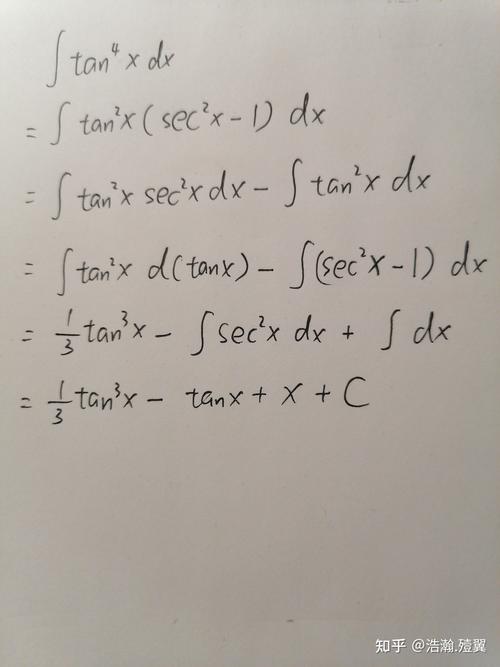 ∫ tan⁴x dx
= ∫ tan²x (sec²x - 1) dx
= ∫ tan²x sec²x dx - ∫ tan²x dx
= ∫ tan²x d(tanx) - ∫(sec²x - 1) dx
= 1/3 tan³x - ∫ sec²x dx + ∫ dx
= 1/3 tan³x - tanx + x + C
知乎 @浩瀚.殪翼